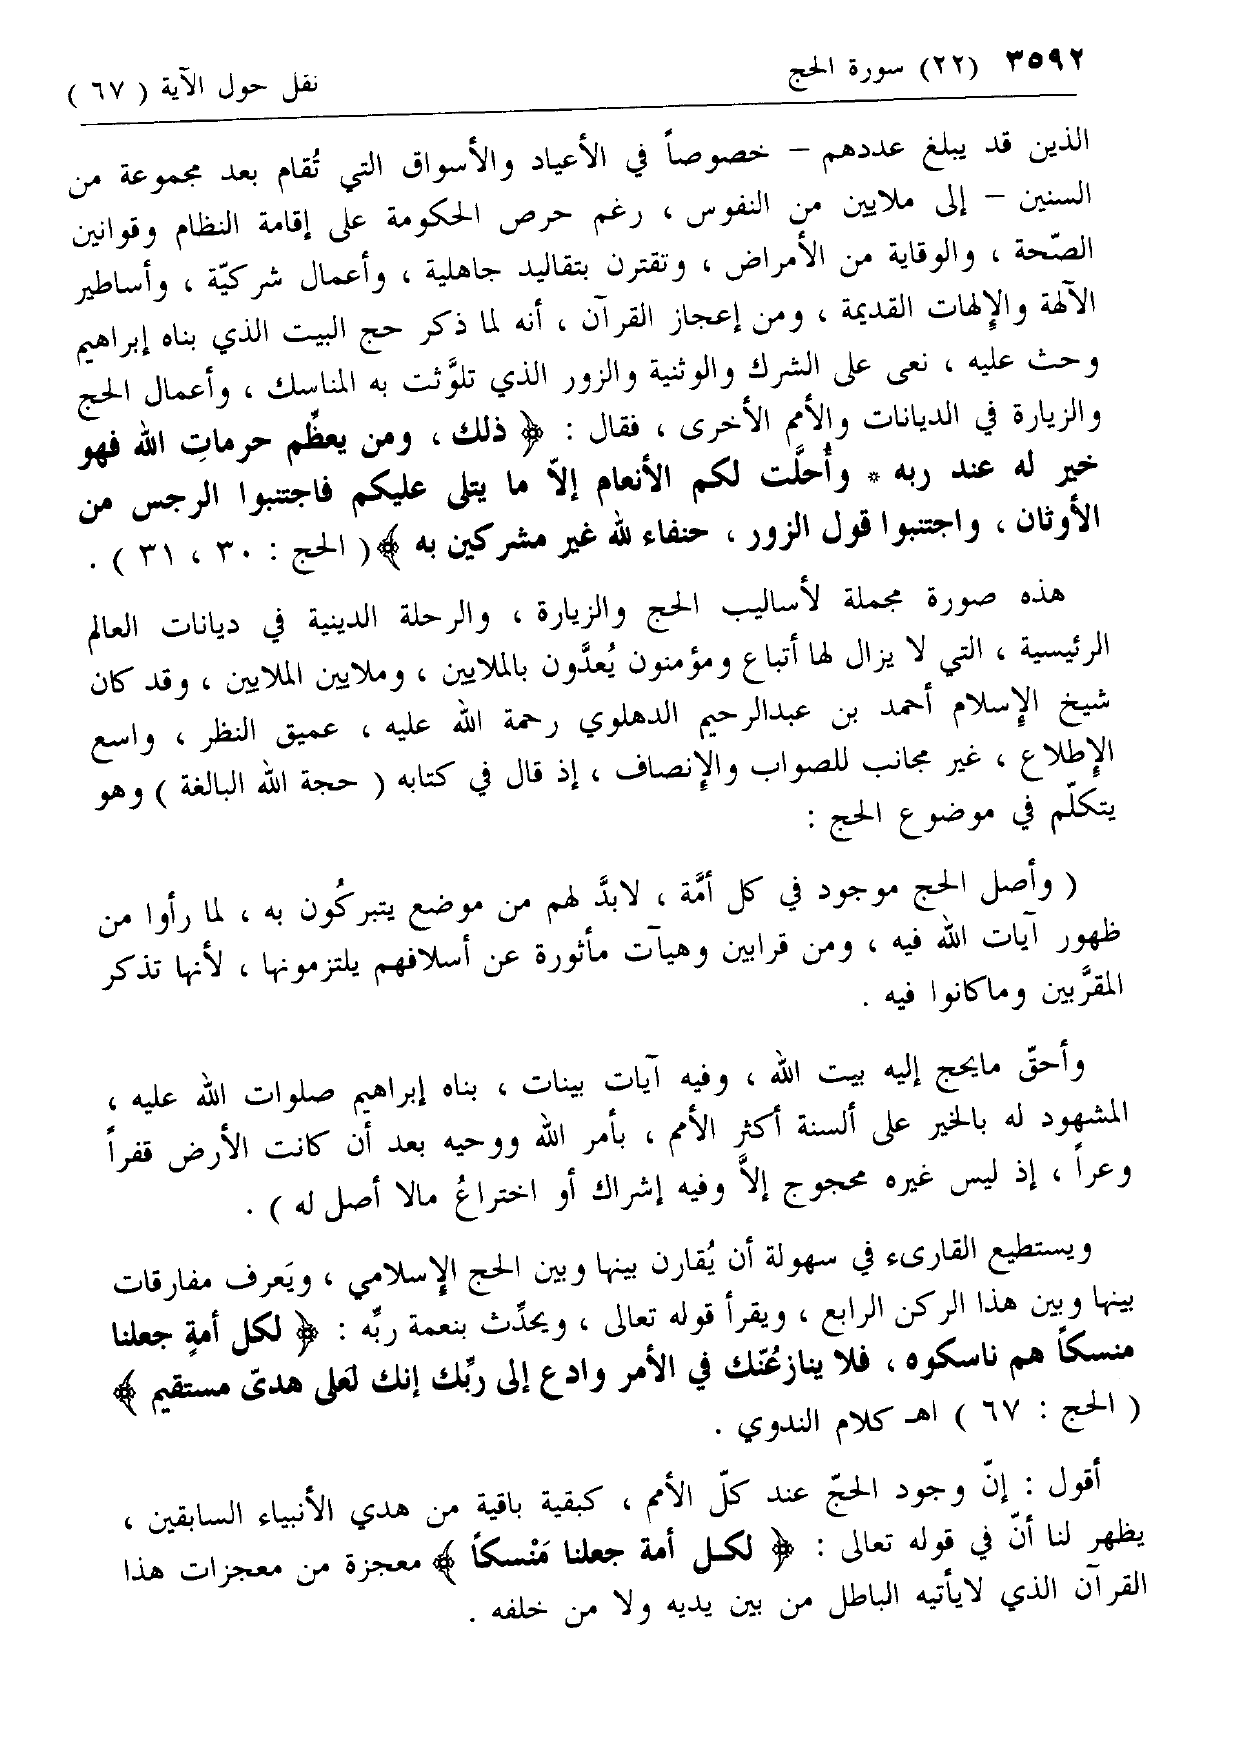 ٣٥٩٢ (٢٢) سورة الحج نقل حول الآية ( ٦٧ )
الذين قد يبلغ عددهم – خصوصاً في الأعياد والأسواق التي تُقام بعد مجموعة من
السنين – إلى ملايين من النفوس ، رغم حرص الحكومة على إقامة النظام وقوانين
الصّحة ، والوقاية من الأمراض ، وتقترن بتقاليد جاهلية ، وأعمال شركيّة ، وأساطير
الآلهة والإلهات القديمة ، ومن إعجاز القرآن ، أنه لما ذكر حج البيت الذي بناه إبراهيم
وحث عليه ، نعى على الشرك والوثنية والزور الذي تلوَّثت به المناسك ، وأعمال الحج
والزيارة في الديانات والأمم الأخرى ، فقال : ﴿ ذلك ، ومن يعظِّم حرماتِ الله فهو
خير له عند ربه * وأُحلَّت لكم الأنعام إلاّ ما يتلى عليكم فاجتنبوا الرجس من
الأوثان ، واجتنبوا قول الزور ، حنفاء لله غير مشركين به ﴾ ( الحج : ٣٠ ، ٣١ ) .
هذه صورة مجملة لأساليب الحج والزيارة ، والرحلة الدينية في ديانات العالم
الرئيسية ، التي لا يزال لها أتباع ومؤمنون يُعدَّون بالملايين ، وملايين الملايين ، وقد كان
شيخ الإسلام أحمد بن عبدالرحيم الدهلوي رحمة الله عليه ، عميق النظر ، واسع
الإطلاع ، غير مجانب للصواب والإنصاف ، إذ قال في كتابه ( حجة الله البالغة ) وهو
يتكلّم في موضوع الحج :
( وأصل الحج موجود في كل أمَّة ، لابدَّ لهم من موضع يتبركُون به ، لما رأوا من
ظهور آيات الله فيه ، ومن قرابين وهيآت مأثورة عن أسلافهم يلتزمونها ، لأنها تذكر
المقرَّبين وماكانوا فيه .
وأحقّ مايحج إليه بيت الله ، وفيه آيات بينات ، بناه إبراهيم صلوات الله عليه ،
المشهود له بالخير على ألسنة أكثر الأمم ، بأمر الله ووحيه بعد أن كانت الأرض قفراً
وعراً ، إذ ليس غيره محجوج إلاَّ وفيه إشراك أو اختراعُ مالا أصل له ) .
ويستطيع القارىء في سهولة أن يُقارن بينها وبين الحج الإسلامي ، ويَعرف مفارقات
بينها وبين هذا الركن الرابع ، ويقرأ قوله تعالى ، ويحدِّث بنعمة ربِّه : ﴿ لكل أمةٍ جعلنا
منسكاً هم ناسكوه ، فلا ينازعُنّك في الأمر وادع إلى ربِّك إنك لَعلى هدىّ مستقيم ﴾
( الحج : ٦٧ ) اهـ كلام الندوي .
أقول : إنّ وجود الحجّ عند كلّ الأمم ، كبقية باقية من هدي الأنبياء السابقين ،
يظهر لنا أنّ في قوله تعالى : ﴿ لكـل أمة جعلنا مَنْسكاً ﴾ معجزة من معجزات هذا
القرآن الذي لايأتيه الباطل من بين يديه ولا من خلفه .